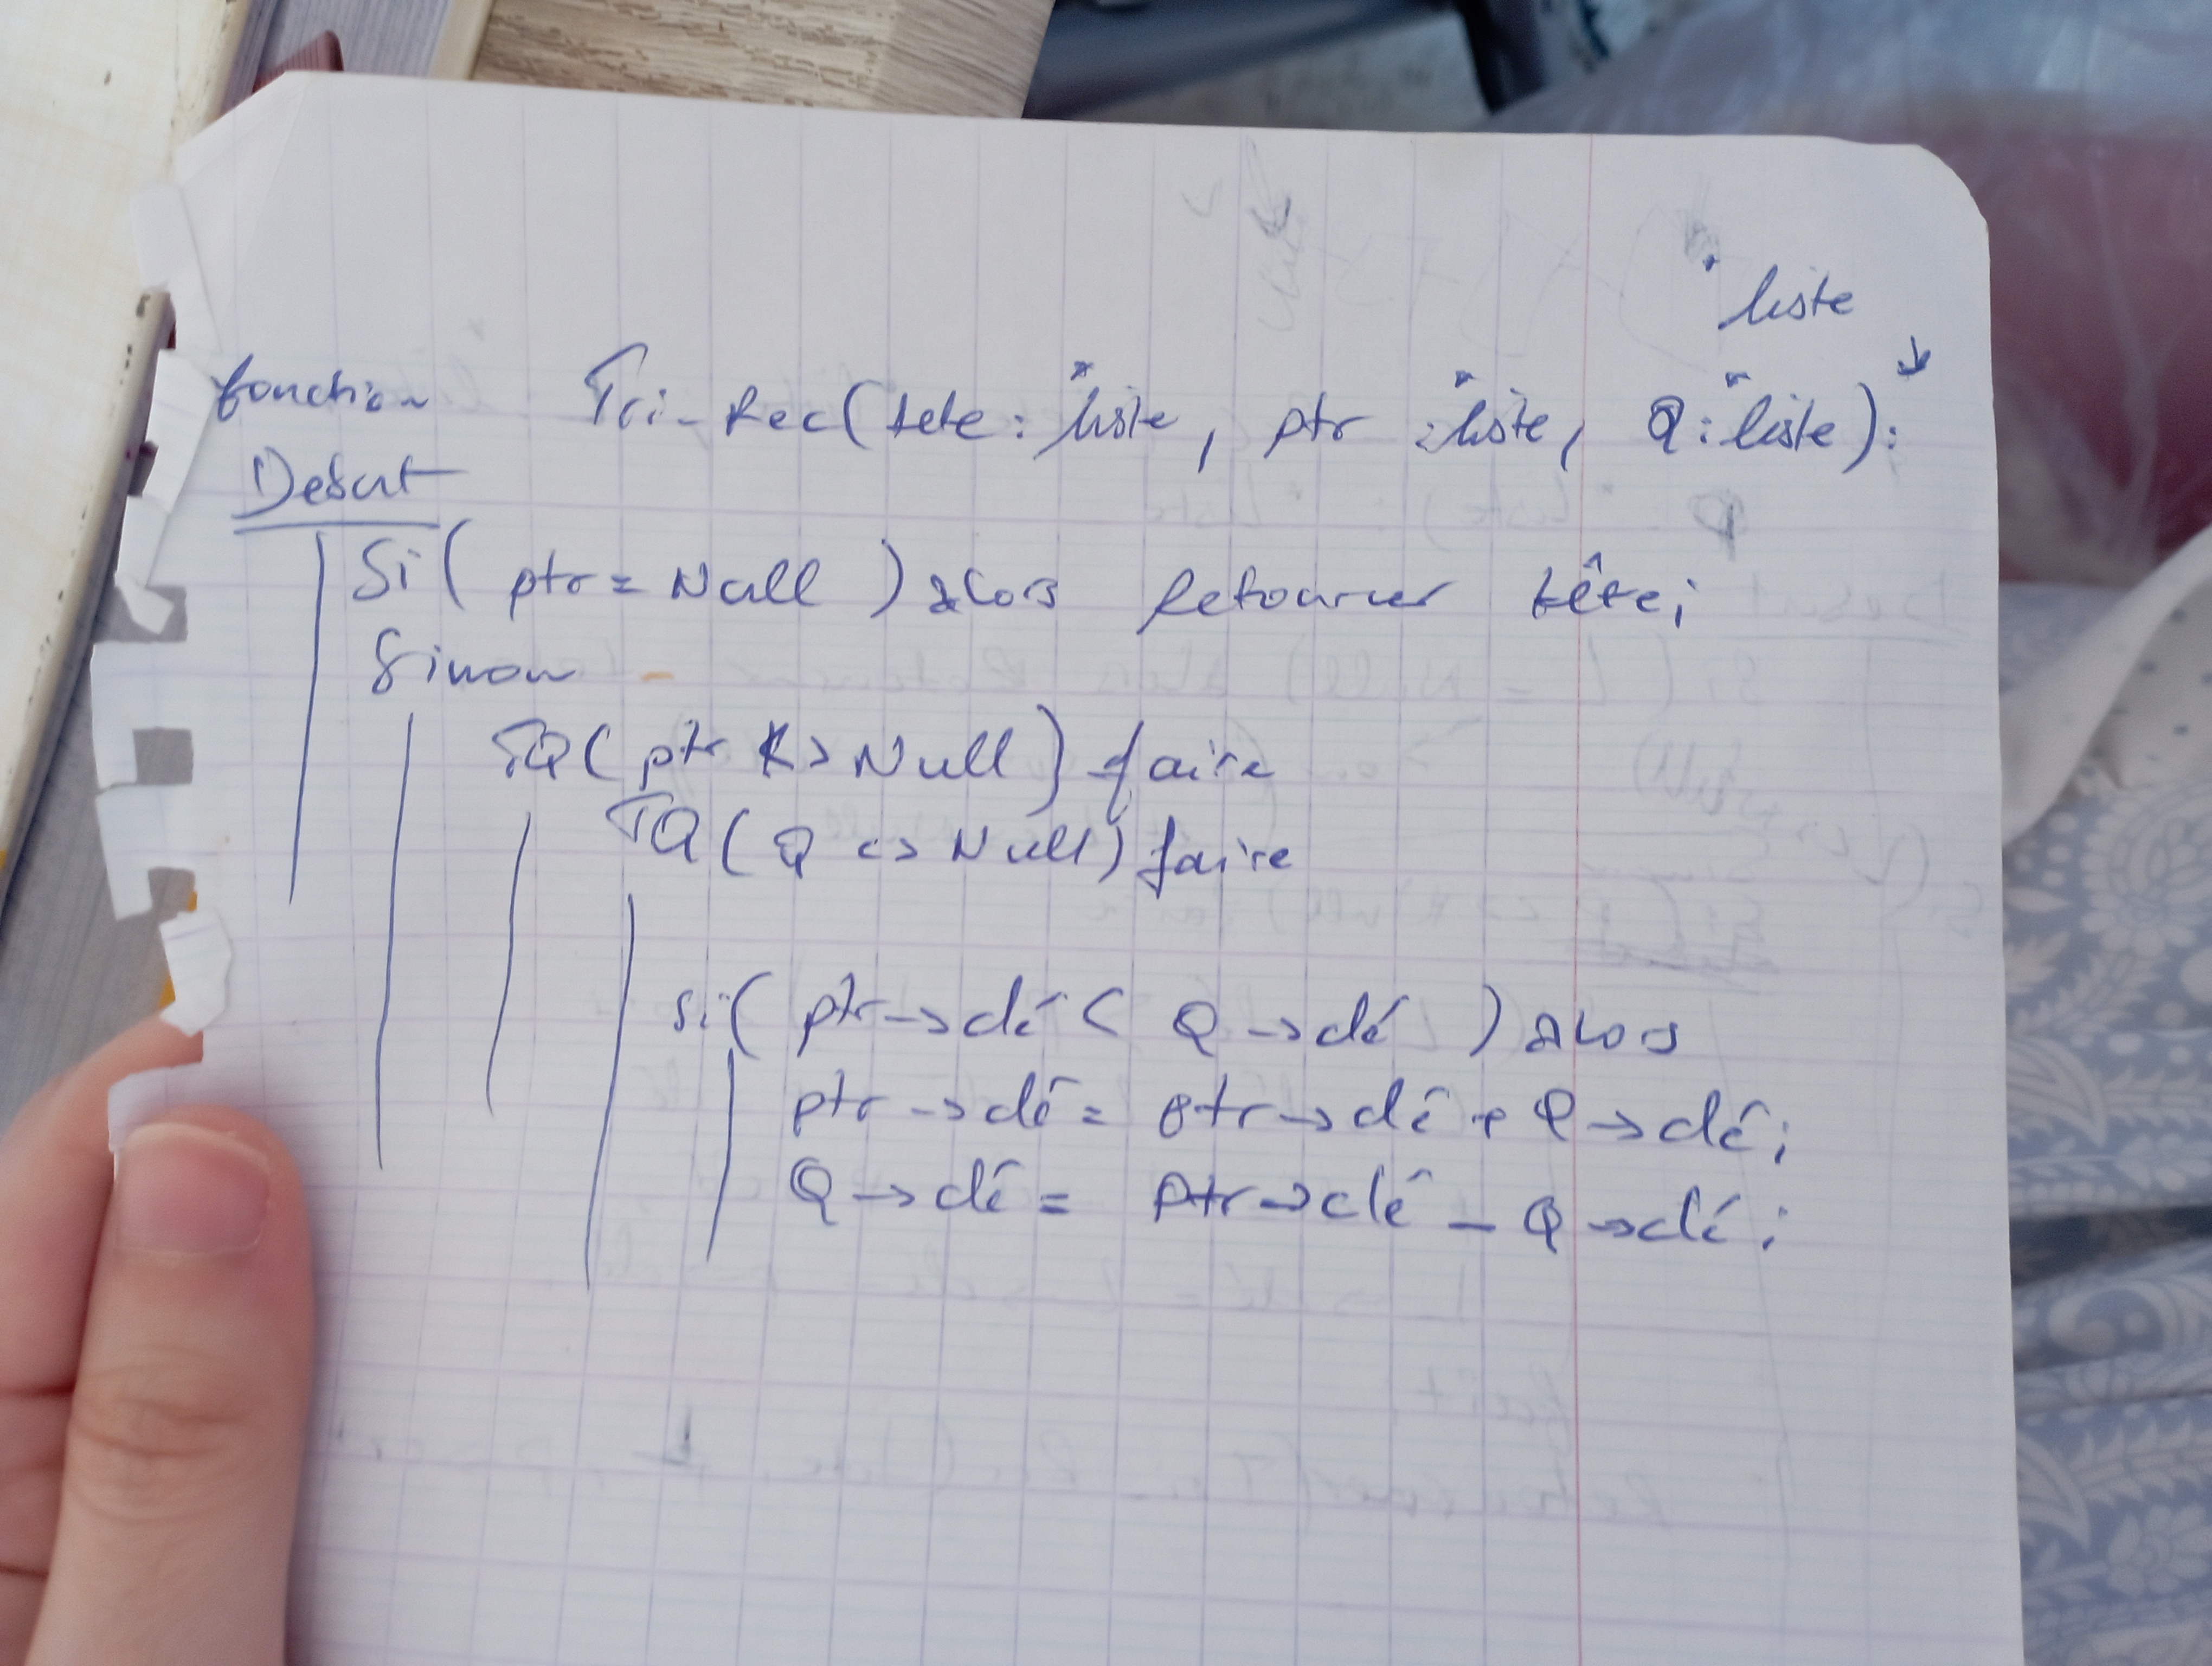 * liste
fonction Tri-Rec(tete: *liste, ptr: *liste, Q: *liste):
Debut
Si( ptr = Null ) alors Retourner tête;
Sinon
TQ( ptr <> Null) faire
TQ( Q <> Null) faire
si( ptr->clé < Q->clé ) alors
ptr->clé = ptr->clé + Q->clé;
Q->clé = ptr->clé - Q->clé;